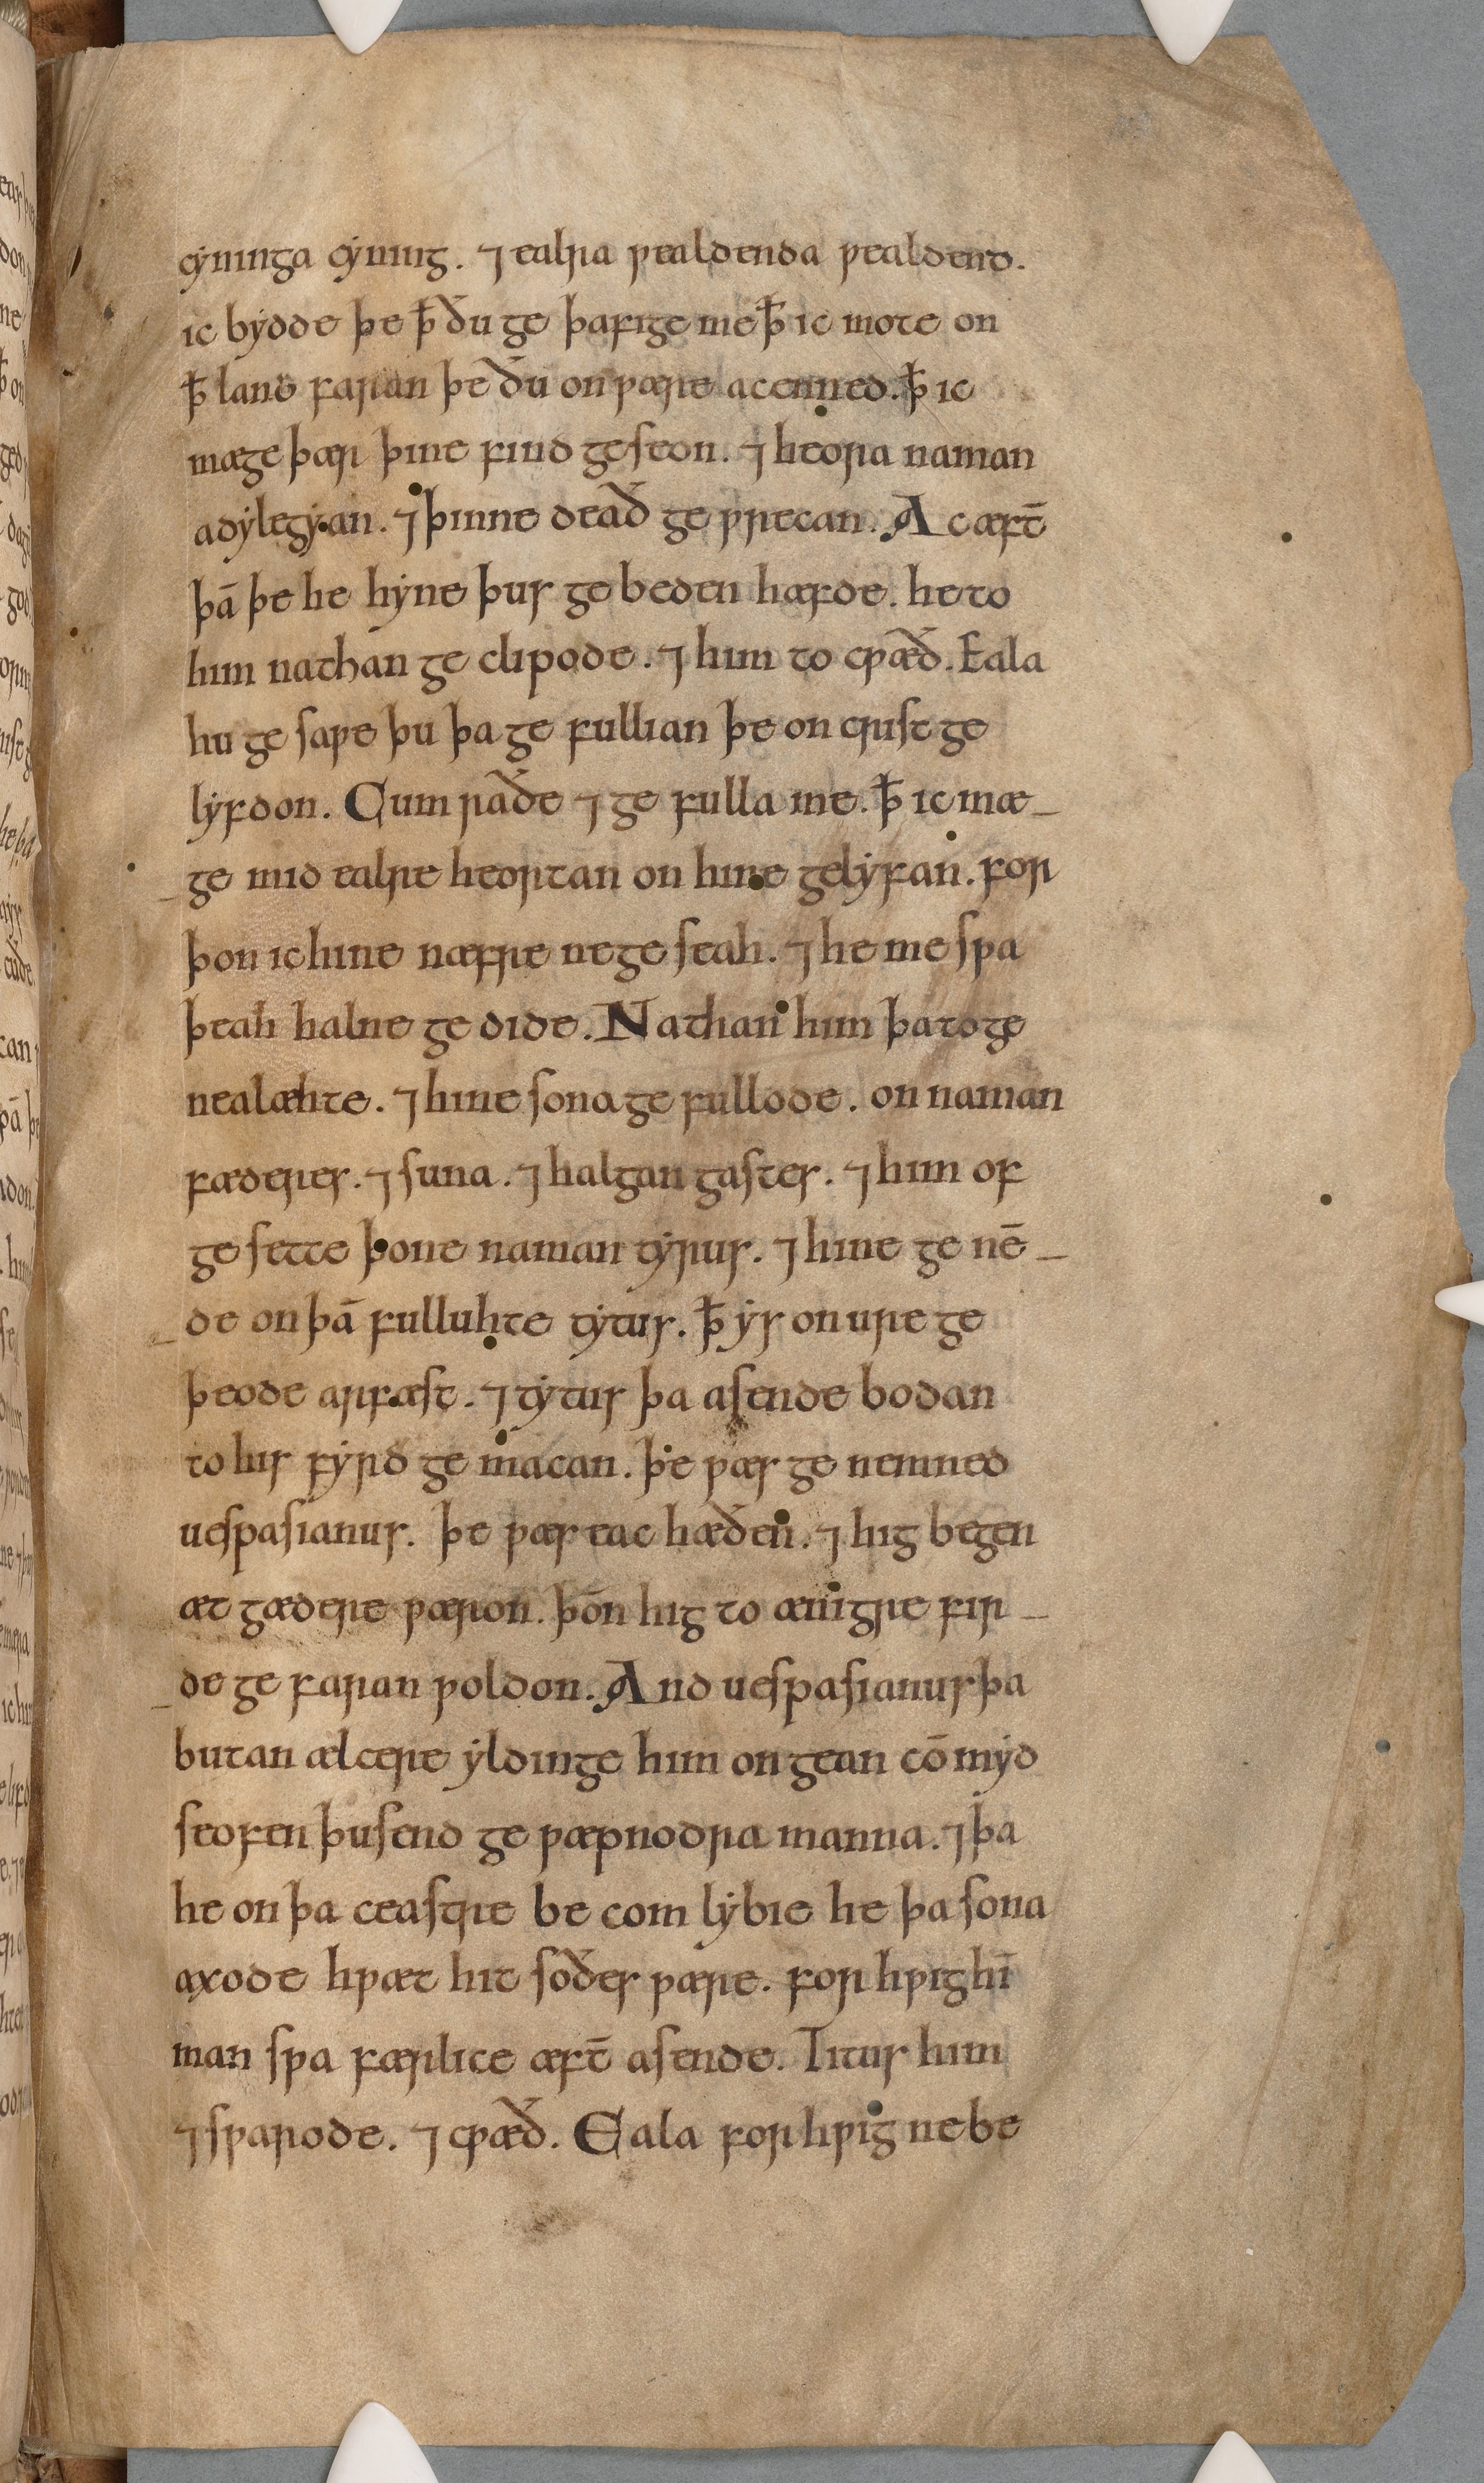 cẏninga cẏning. ⁊ ealra ƿealdenda ƿealdend.
ic bẏdde þe ꝥ ðu ge þafige me ꝥ ic mote on
ꝥ land faran þe ðu on ƿære acenned. ꝥ ic
mæge þær þine find geseon. ⁊ heora naman
adẏlegẏan. ⁊ þinne deað ge ƿrecan. Ac æft̄
þā þe he hẏne þus ge beden hæfde. he to
him nathan ge clipode. ⁊ him to cƿæð. Eala
hu ge saƿe þu þa ge fullian þe on crist ge
lẏfdon. Cum raðe ⁊ ge fulla me. ꝥ ic mæ-
ge mid ealre heortan on hine gelẏfan. for
þon ic hine næfre ne ge seah. ⁊ he me sƿa
þeah halne ge dide. Nathan him þa to ge
nealæhte. ⁊ hine sona ge fullode. on naman
fæderes. ⁊ suna. ⁊ halgan gastes. ⁊ him of
ge sette þone naman tẏrus. ⁊ hine ge nē-
de on þā fulluhte tẏtus. ꝥ ẏs on ure ge
þeode arfæst. ⁊ tẏtus þa asende bodan
to his fẏrd ge macan. þe ƿæs ge nemned
uespasianus. þe ƿæs eac hæðen. ⁊ hig begen
æt gædere ƿæron. þōn hig to ænigre fir-
de ge faran ƿoldon. And uespasianus þa
butan ælcere ẏldinge him on gean cō mẏd
seofen þusend ge ƿæpnodra manna. ⁊ þa
he on þa ceastre be com lẏbie he þa sona
axode hƿæt hit soðes ƿære. for hƿig hī
man sƿa færlice æft̄ asende. Titus him
⁊sƿarode. ⁊ cƿæð. Eala for hƿig ne be